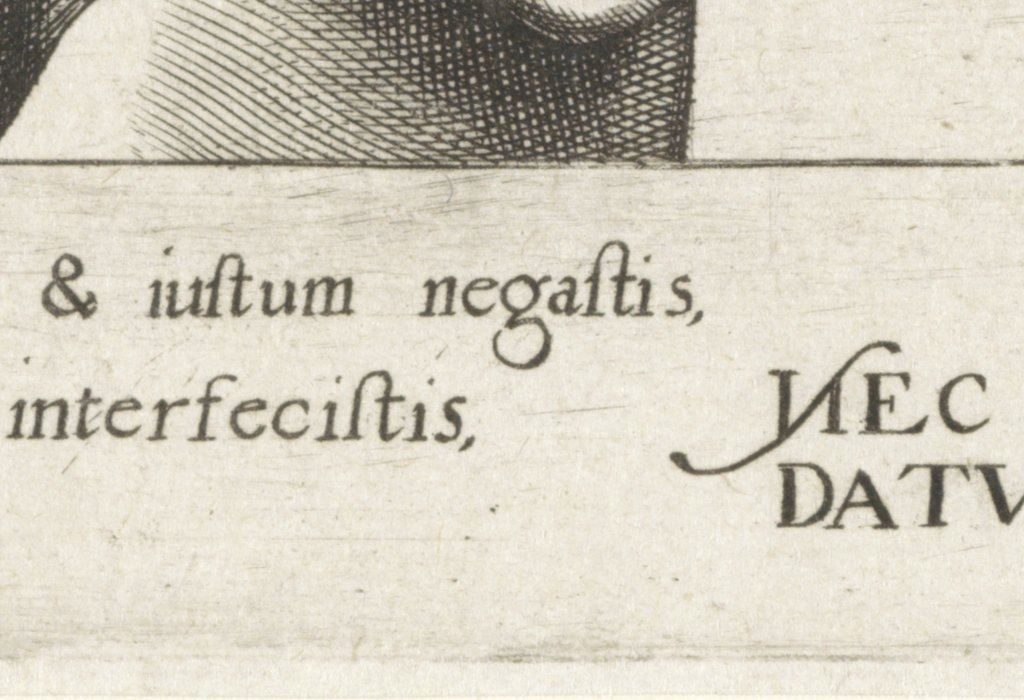 & iuſtum negaſtis,
interfeciſtis,
NEC
DATV